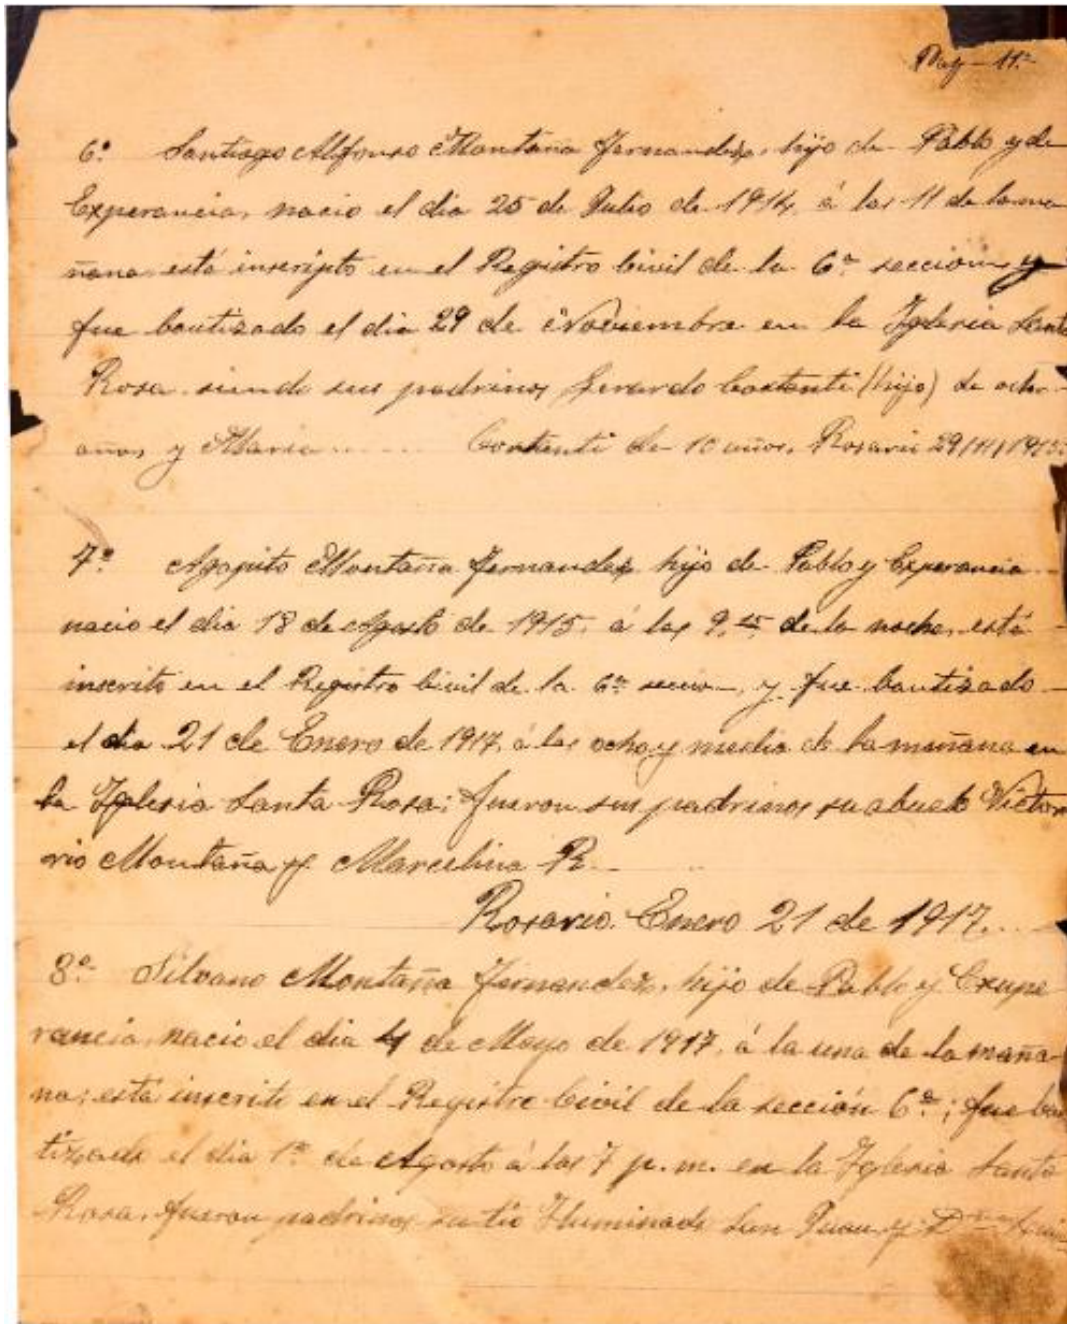 Pag - 11ª
6º Santiago Alfonso Montaña Fernandez, hijo de Pablo y de
Experancia, nacio el dia 25 de Julio de 1914, á las 11 de la ma
ñana está inscripto en el Registro Civil de la 6ª sección, y
fue bautizado el dia 29 de Noviembre en la Iglesia Santa
Rosa siendo sus padrinos Gerardo (hijo) de ocho
años y Maria ........ de 10 años. Rosario 29/11/1915.
7º Agapito Montaña Fernandez hijo de Pablo y Experancia
nacio el dia 18 de Agosto de 1915, á las 9,15 de la noche, está
inscrito en el Registro Civil de la 6ª y fue bautizado
el dia 21 de Enero de 1917, á las ocho y media de la mañana en
la Iglesia Santa Rosa; fueron sus padrinos su abuelo Victo
rio Montaña y Marcelina R...
Rosario. Enero 21 de 1917....
8º Silvano Montaña Fernandez, hijo de Pablo y Exupe
rancia, nacio el dia 4 de Mayo de 1917, á la una de la maña
na; está inscrito en el Registro Civil de la sección 6ª; fue bau
tizado el dia 1º de Agosto á las 7 p.m. en la Iglesia Santa
Rosa, fueron padrinos su tio Iluminado San Juan y